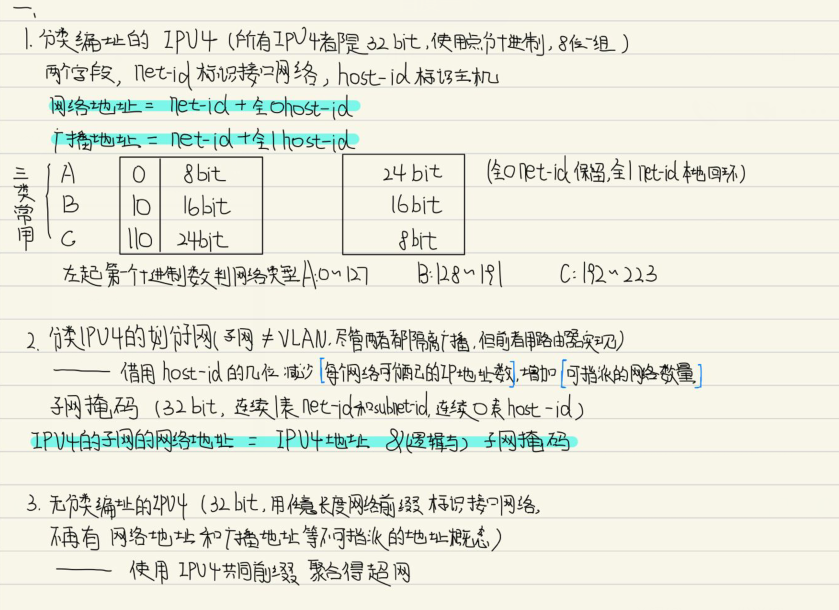 一、
1. 分类编址的 IPV4 (所有IPV4都是32bit,使用点分十进制,8位一组)
两个字段, net-id标识接口网络, host-id标识主机
网络地址 = net-id + 全0host-id
广播地址 = net-id + 全1host-id
三类常用
A 0 8bit 24bit (全0 net-id 保留,全1 net-id本地回环)
B 10 16bit 16bit
C 110 24bit 8bit
左起第一个十进制数判网络类型 A:0~127 B:128~191 C:192~223
2. 分类IPV4的划分子网(子网 ≠ VLAN,尽管两者都隔离广播,但前者用路由器实现)
—— 借用host-id的几位 减少[每个网络可分配的IP地址数],增加[可指派的网络数量]
子网掩码 (32bit, 连续1表net-id和subnet-id,连续0表host-id)
IPV4的子网的网络地址 = IPV4地址 &(逻辑与) 子网掩码
3. 无分类编址的IPV4 (32bit,用任意长度网络前缀 标识接口网络,
不再有 网络地址和广播地址等不可指派的地址概念)
—— 使用 IPV4共同前缀 聚合得超网